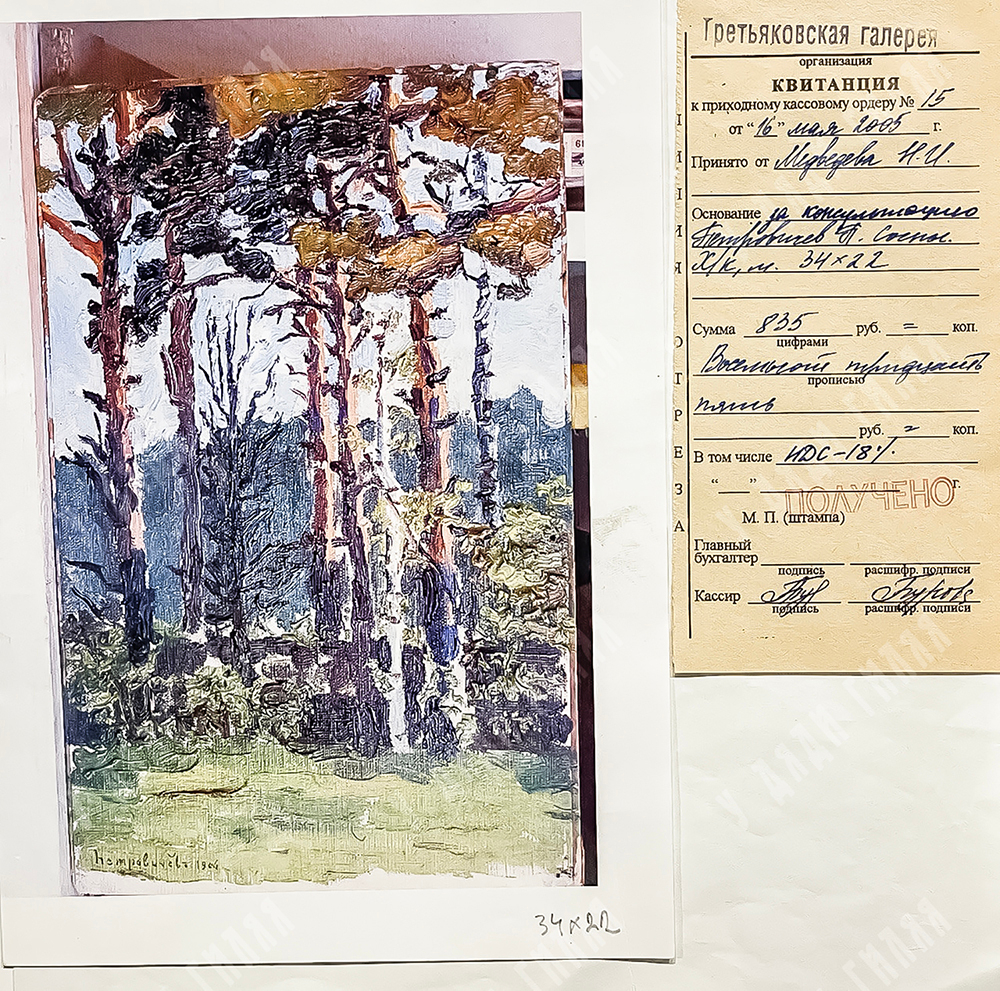 Петровичевъ 1904
34×22
Третьяковская галерея
организация
КВИТАНЦИЯ
к приходному кассовому ордеру № 15
от "16" мая 2005 г.
Принято от Медведева Н.И.
Основание за консультацию
Петровичев П. Сосны.
Х/к, м. 34×22
Сумма 835 руб. = коп.
цифрами
Восемьсот тридцать
прописью
пять
руб. = коп.
В том числе НДС-18%
"__" г.
ПОЛУЧЕНО
М. П. (штампа)
Главный
бухгалтер
подпись расшифр. подписи
Кассир
подпись расшифр. подписи
ЛИНИЯ ОТРЕЗА
У ДЯДИ ГИЛЯЯ